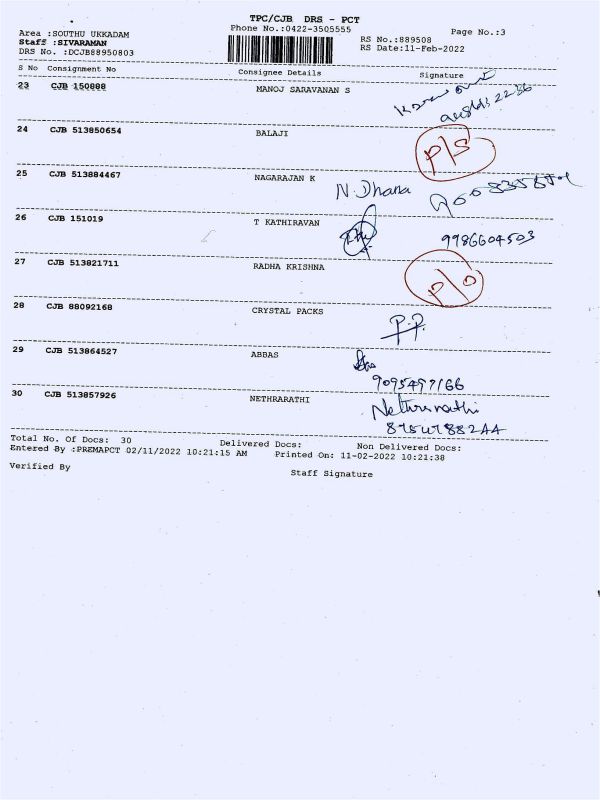 TPC/CJB DRS - PCT
Area :SOUTHU UKKADAM Phone No.:0422-3505555 Page No.:3
Staff :SIVARAMAN RS No.:889508
DRS No. :DCJB88950803 RS Date:11-Feb-2022
S No Consignment No Consignee Details Signature
23 CJB 150888 MANOJ SARAVANAN S
24 CJB 513850654 BALAJI P/S
25 CJB 513884467 NAGARAJAN K N. Dhana
26 CJB 151019 T KATHIRAVAN 9986604503
27 CJB 513821711 RADHA KRISHNA P/O
28 CJB 88092168 CRYSTAL PACKS P.P.
29 CJB 513864527 ABBAS
9095497166
30 CJB 513857926 NETHRARATHI Nethrarathi
Total No. Of Docs: 30 Delivered Docs: Non Delivered Docs:
Entered By :PREMAPCT 02/11/2022 10:21:15 AM Printed On: 11-02-2022 10:21:38
Verified By Staff Signature